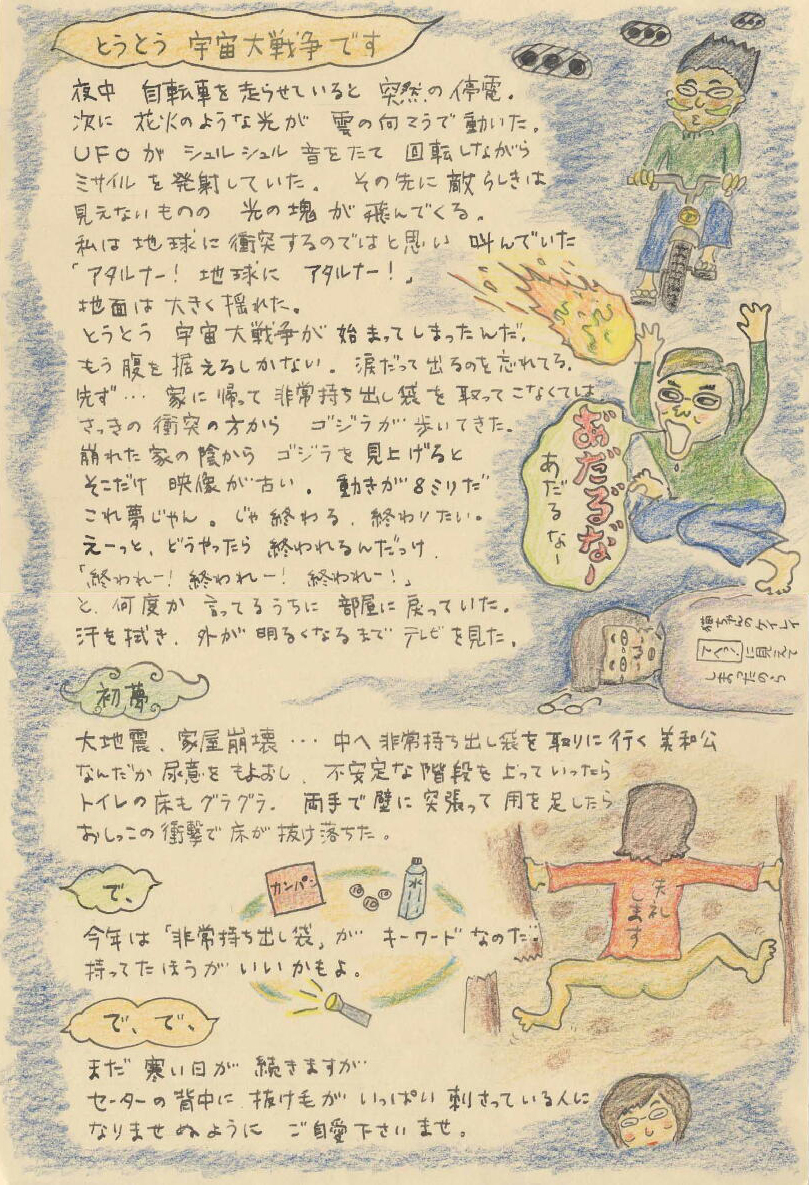 とうとう 宇宙大戦争です
夜中 自転車を走らせていると 突然の停電。
次に 花火のような光が 雲の向こうで動いた。
UFOが シュルシュル 音をたて 回転しながら
ミサイルを発射していた。 その先に敵らしきは
見えないものの 光の塊が飛んでくる。
私は地球に衝突するのではと思い 叫んでいた
「アタルナー! 地球に アタルナー!」
地面は大きく揺れた。
とうとう 宇宙大戦争が 始まってしまったんだ。
もう腹を据えるしかない。 涙だって出るのを忘れてる。
先ず… 家に帰って 非常持ち出し袋を取ってこなくては
さっきの衝突の方から ゴジラが歩いてきた。
崩れた家の陰から ゴジラを見上げると
そこだけ 映像が古い。 動きが8ミリだ
これ夢じゃん。 じゃ終わる、終わりたい。
えーっと、どうやったら 終われるんだっけ、
「終われー! 終われー! 終われー!」
と、何度か 言ってるうちに 部屋に戻っていた。
汗を拭き、外が明るくなるまで テレビを見た。
あ゛だる゛な゛ー
あだるなー
猫ちゃんのケイレイ
に見えて
しまったのら
初夢
大地震、家屋崩壊… 中へ非常持ち出し袋を取りに行く 美和公
なんだか尿意をもよおし、不安定な階段を上っていったら
トイレの床もグラグラ。 両手で壁に突張って用を足したら
おしっこの衝撃で床が抜け落ちた。
失礼
します
で、
カンパン
10
10
10
水
今年は「非常持ち出し袋」が キーワードなのだ
持ってたほうが いいかもよ。
で、で、
まだ 寒い日が 続きますが
セーターの背中に 抜け毛が いっぱい 刺さっている人に
なりませぬように ご自愛下さいませ。